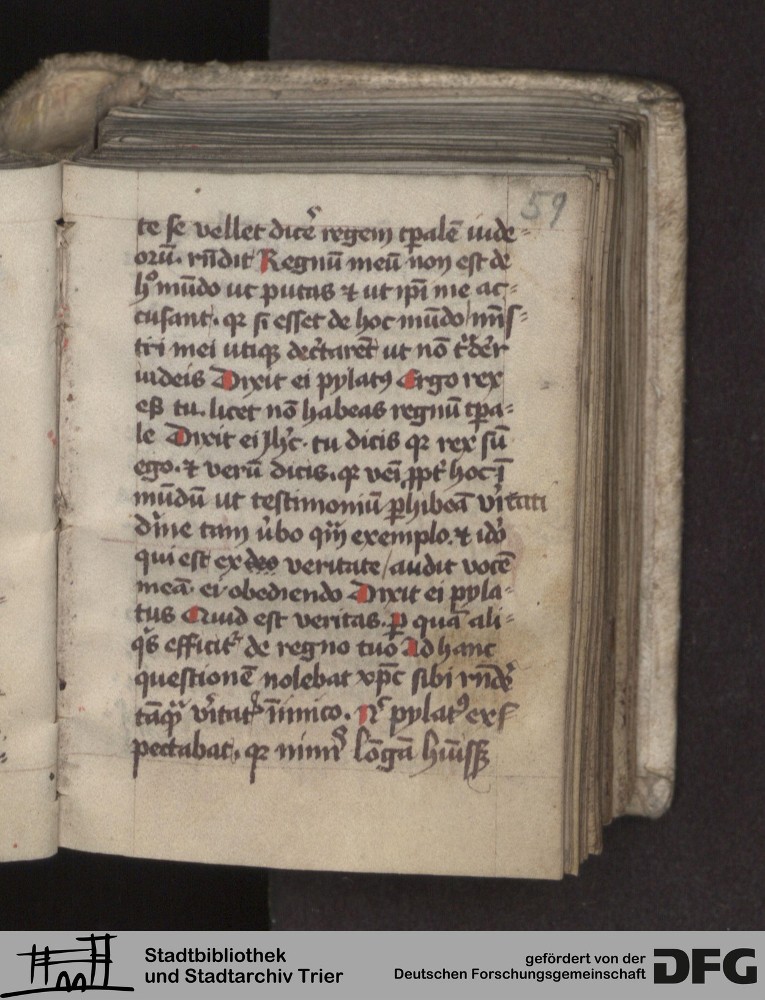 59
te se vellet dicẽ regem tp̱alẽ iude⸗
orū. rñdit Regnū meū non est de
hͦ mūdo ut putas ⁊ ut ip̄i me ac⸗
cusant. qꝛ si esset de hoc mūdo / mīs⸗
tri mei utiqꝫ dec̄tarēt ut nō
iudeis Dixit ei pylatꝰ Ergo rex
es tu. licet nō habeas regnū tp̱a⸗
le Dixit ei Jhc̄. tu dicis qꝛ rex sū
ego. ⁊ verū dicis. qꝛ veī ꝓpt̄ hoc ī
mūdū ut testimoniū ꝑhibeā v̄itati
tam v̄bo qm̄ exemplo. ⁊ idō
qui est ex veritate / audit vocē
meā. ei obediendo Dixit ei pyla⸗
tus Quid est veritas. ꝑ quā ali⸗
qͥs efficitᷣ de regno tuo Ad hanc
questionē nolebat xp̄c sibi rn̄dē
tāqͣ v̄itatͥ īimico. Nͨ pylatꝰ exs
pectabat. qꝛ nimͥ lōgā
Stadtbibliothek
und Stadtarchiv Trier
gefördert von der
Deutschen Forschungsgemeinschaft
DFG